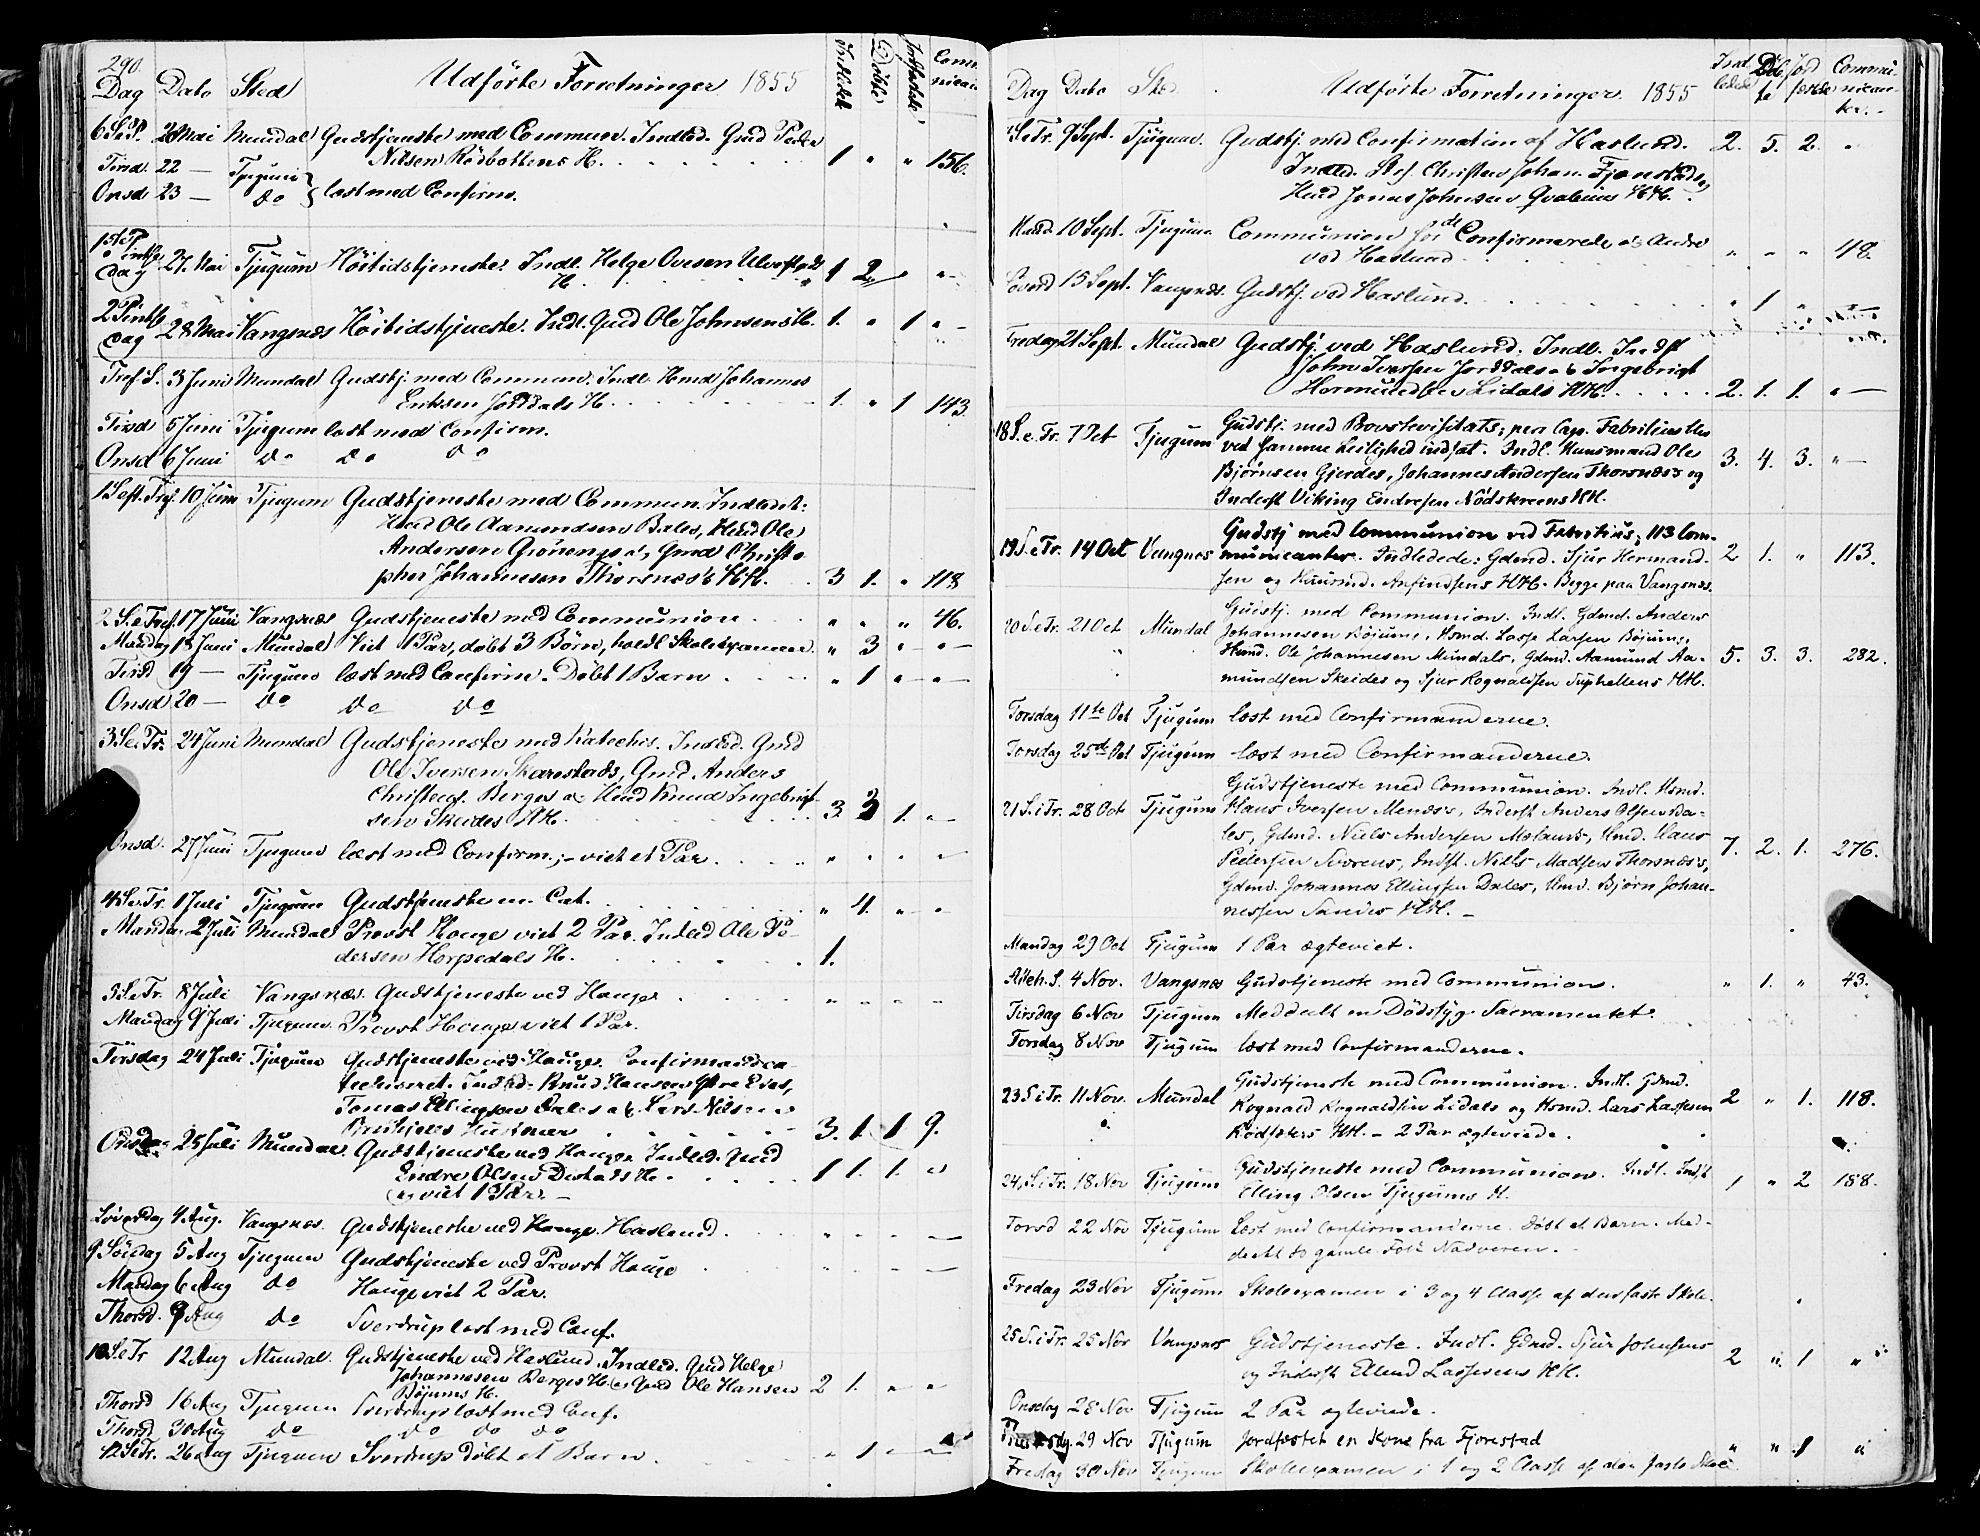 290.
Dag Dato Sted Udførte Forretninger 1855 Indledede Døbte Jordfæstede Communican
6 S.e.P. 20 Mai Mundal Gudstjeneste med Commun. Indled. Gmd Peder
Nilsen Rödbottens H. 1 " " 156.
Tirsd. 22 — Tjugum læst med Confirm.
Onsd 23 — do
1ste Pintse dag 27. Mai Tjugum Höitidstjeneste. Indl. Helge Ovesen Ulvestads
H. 1 2 " "
2 Pintse dag 28 Mai Vangsnæs Höitidstjeneste. Indl. Gmd Ole Johnsens H. 1. " 1 " –
Tref. S. 3 Juni Mundal Gudstj. med Commun. Indl. Hmd Johannes
Eriksen Jorddals H. 1. " 1 143
Tirsd 5 Juni Tjugum læst med Confirm.
Onsd 6 Juni do do do
1 S. eft. Tref. 10 Juni Tjugum Gudstjeneste med Commun. Indledt:
Hmd Ole Aamundsen Bales, Hmd Ole
Andersen Grönengs og Gmd Christo
pher Johannesen Thorsnæs's HH. 3 1. " 118
2 S.e. Tref. 17 Juni Vangsnæs Gudstjeneste med Communion " " " 46.
Mandag 18 Juni Mundal Viet 1 Par, döbt 3 Börn, holdt Skoleexamen. " 3 " " –
Tirsd 19 — Tjugum læst med Confirm. Döbt 1 Barn " 1 " "
Onsd 20 — do do do
3 S.e. Tr. 24 Juni Mundal Gudstjeneste med Katechis. Indled. Gmd
Ole Iversen Skarestads, Gmd. Anders
Christens. Berges og Hmd Knud Ingebrigt
sen Skeides HH. 3 3 1. "
Onsd. 27 Juni Tjugum læst med Confirm.; – viet et Par. " " " "
4 S.e. Tr. 1 Juli Tjugum Gudstjeneste m. Cat. " 4. " "
Mandag 2 Juli Mundal Provst Hauge viet 2 Par. Indled Ole Pe-
dersen Horpedals H. 1.
5 S.e. Tr. 8 Juli Vangsnæs. Gudstjeneste ved Hauge " " " "
Mandag 9 Juli Tjugum Provst Hauge viet 1 Par.
Tirsdag 24 Juli Tjugum Gudstjeneste ved Hauge. Confirmandca
techiseret. Indled. Knud Hansen
Tomas Ellingsen Dales og Lars Nilsen
Hustruer 3. 1. 1 9.
Onsdag 25 Juli Mundal. Gudstjeneste ved Hauge Indled. Gmd
Endre Olsen H. 1 1. 1. "
og viet 1 Par. –
Löverdag 4 Aug. Vangsnæs. Gudstjeneste ved Hauge. Haslund. " " " "
9 Söndag 5 Aug Tjugum Gudstjeneste ved Provst Hauge " " " "
Mandag 6 Aug do Hauge viet 2 Par.
Thorsd. 9 Aug do Sverdrup læst med Conf.
10 S.e Tr 12 Aug Mundal. Gudstjeneste ved Haslund. Indled. Gmd Helge
Johannesen Berges H. og Gmd Ole Hansen 2 1. " "
Böjums H.
Thorsd 16 Aug Tjugum Sverdrup læst med Conf.
Thorsd 30 Aug do do do do
12 S.e Tr. 26 Aug Tjugum Sverdrup döbt et Barn. " 1 " "
Dag Dato Sted Udførte Forretninger. 1855 Indledede Døbte Jordfæstede Communicanter.
S.e. Tr. 9 Sept. Tjugum. Gudstj. med Confirmation af Haslund. 2. 5. 2. "
Indled. Str. Christen Johan. Fjærestads og
Hmd Jonas Johnsen HH.
Mand. 10 Sept. Tjugum Communion for de Confirmerede og Andre
ved Haslund. " " " 48.
Löverd 15 Sept. Vangsnæs. Gudstj. ved Haslund. " 1 " "
Fredag 21 Sept. Mundal Gudstj. ved Haslund. Indl. Indst
John Iversen Jorddals og Ingebrigt
Hermundsen Lidals HH. 2. 1. 1. " —
18 S.e. Tr. 7 Oct Tjugum Gudstj. med Provstevisitats; pers Cap. Fabritius blev
ved samme Leilighed indsat. Indl. Huusmand Ole
Björnsen Gjerdes, Johannes Andersen Thorsnæs's og 3. 4. 3. " —
Inderst Viking Endresen Nödskreens HH.
19 S.e. Tr. 14 Oct Vangnes Gudstj med Communion ved Fabritius; 113 Com-
municanter. Indledede: Gdmd. Sjur Hermund- 2 1. " 113.
sen og Huusmd. Anfindsens HH. Begge paa Vangsnæs.
20 S.e. Tr. 21 Oct Mundal Gudstj. med Communion. Indl. Gdmd. Anders
Johannesen Böjums, Hsmd. Lasse Larsen Böjums,
Husmd. Ole Johannesen Mundals, Gdmd. Aamund Aa- 5. 3. 3. 282.
mundsen Skeides og Sjur Rognaldsen Suphellens HH.
Torsdag 11te Oct Tjugum læst med Confirmanderne.
Torsdag 25de Oct Tjugum læst med Confirmanderne.
21 S. e. Tr. 28 Oct Tjugum Gudstjeneste med Communion. Indl. Hsmd.
Hans Iversen Menæs's, Inderst Anders Olsen Ba-
les, Gdmd. Niels Andersen Mælands, Hmd. Hans
Pedersen Svorens, Indst. Niels Madsen Thorsnæs's, 7. 2. 1. 276.
Gdmd. Johannes Ellingsen Dales, Hmd. Björn Johan-
nessen Sandes HH. –
Mandag 29 Oct Tjugum 1 Par ægteviet.
Alleh. S. 4 Nov. Vangsnes Gudstjeneste med Communion. " 1. " 43.
Tirsdag 6 Nov Tjugum Meddeelt en Dödssyg Sacramentet.
Torsdag 8 Nov Tjugum læst med Confirmanderne.
23. S. e. Tr. 11 Nov. Mundal Gudstjeneste med Communion. Indl. Gdmd.
Rognald Rognaldsen Lidals og Hsmd. Lars Lassesen 2 " 1. 118.
HH. – 2 Par ægteviede.
24. S. e. Tr. 18 Nov Tjugum Gudstjeneste med Communion. Indl. Indst
Elling Olsen Tjugums H. 1 " 2 188.
Torsd 22 Nov Tjugum Læst med Confirmanderne. Döbt et Barn. Med-
deelt to gamle Folk Nadveren. –
Fredag 23 Nov Tjugum Skoleexamen i 3 og 4 Classe af den faste Skole.
25 S. e. Tr. 25 Nov Vangsnes Gudstjeneste. Indl. Gdmd. Sjur Johnsens
og Inderst Ellend Lassesens HH. 2 " 1 "
Onsdag 28 Nov Tjugum 2 Par ægteviede.
29 Nov Tjugum Jordfæstet en Kone fra Fjærestad " " 1 "
Fredag 30 Nov Tjugum Skoleexamen i 1 og 2 Classe af den faste Skole